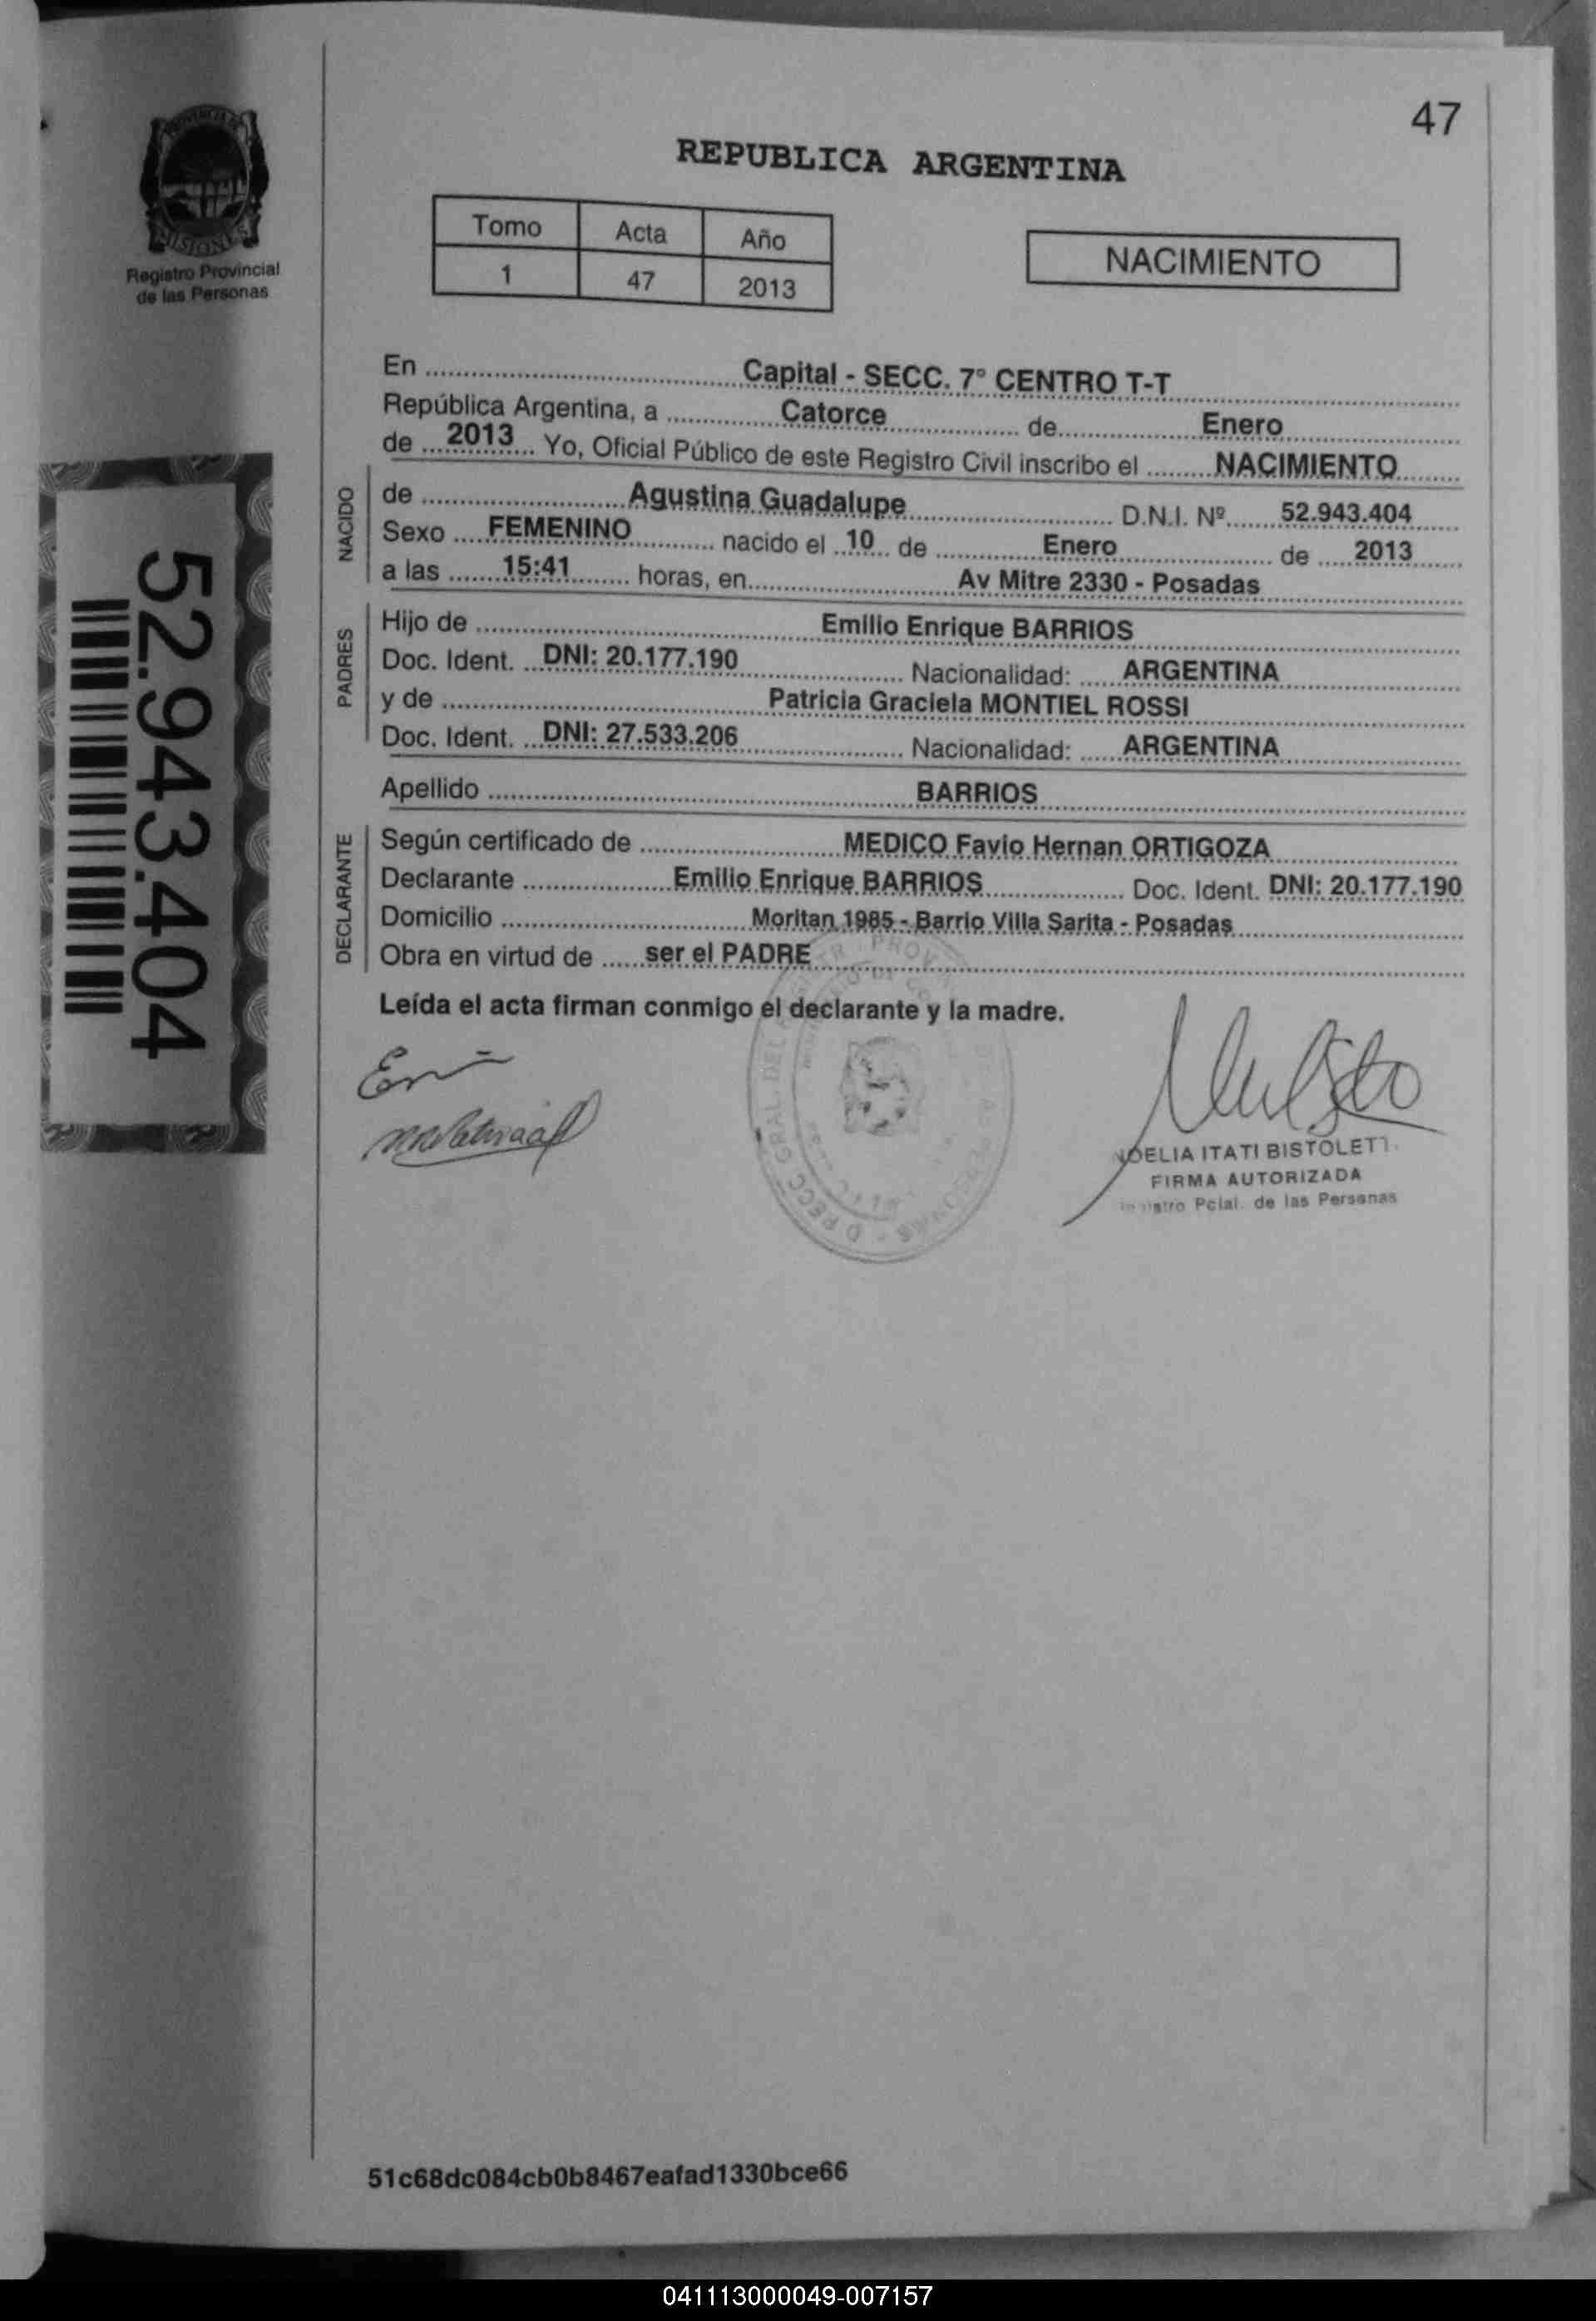 47
REPUBLICA ARGENTINA
PROVINCIA DE
MISIONES
Registro Provincial
de las Personas
Tomo Acta Año
1 47 2013
NACIMIENTO
En Capital - SECC. 7° CENTRO T-T
República Argentina, a Catorce de Enero
de 2013 Yo, Oficial Público de este Registro Civil inscribo el NACIMIENTO
NACIDO
de Agustina Guadalupe D.N.I. Nº 52.943.404
Sexo FEMENINO nacido el 10 de Enero de 2013
a las 15:41 horas, en Av Mitre 2330 - Posadas
PADRES
Hijo de Emilio Enrique BARRIOS
Doc. Ident. DNI: 20.177.190 Nacionalidad: ARGENTINA
y de Patricia Graciela MONTIEL ROSSI
Doc. Ident. DNI: 27.533.206 Nacionalidad: ARGENTINA
Apellido BARRIOS
DECLARANTE
Según certificado de MEDICO Favio Hernan ORTIGOZA
Declarante Emilio Enrique BARRIOS Doc. Ident. DNI: 20.177.190
Domicilio Moritan 1985 - Barrio Villa Sarita - Posadas
Obra en virtud de ser el PADRE
Leída el acta firman conmigo el declarante y la madre.
52.943.404
NOELIA ITATI BISTOLETTI
FIRMA AUTORIZADA
Pcial. de las Personas
51c68dc084cb0b8467eafad1330bce66
041113000049-007157